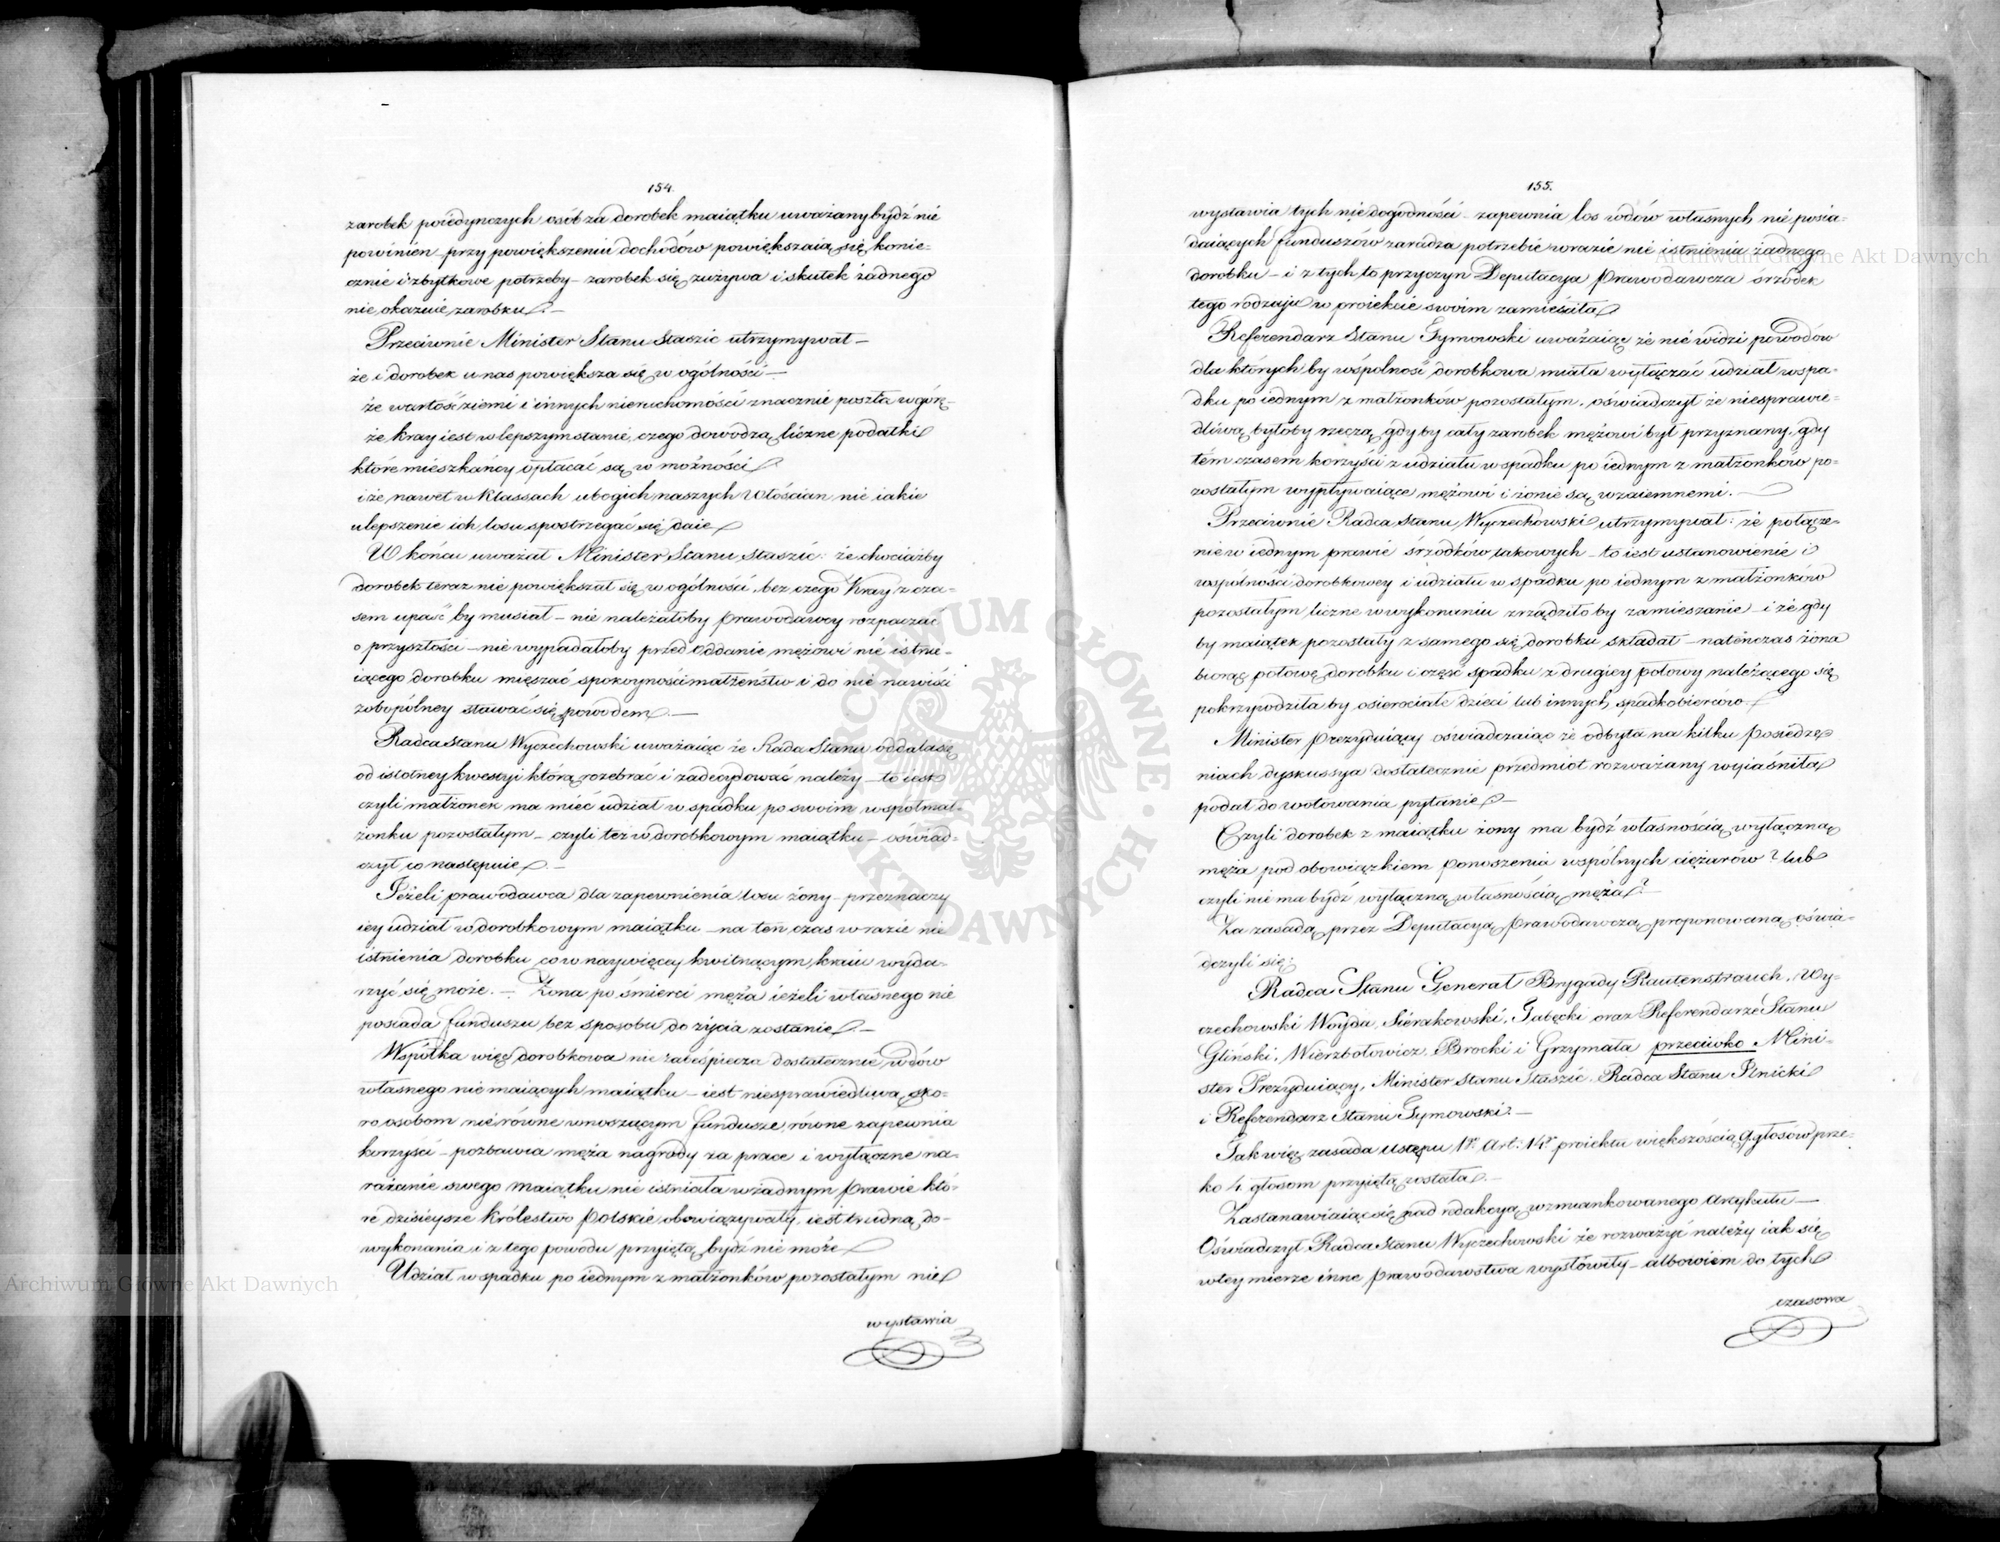 154.
zarobek poiedynczych osób za dorobek maiątku uważany bydź nie
powinien – przy powiększeniu dochodów powiększaią się konie-
cznie i zbytkowe potrzeby – zarobek się zużywa i skutek żadnego
nie okazuie zarobku. –
Przeciwnie Minister Stanu Staszic utrzymywał –
że i dorobek u nas powiększa się w ogólności –
że wartość ziemi i innych nieruchomości znacznie poszła w górę –
że kray iest w lepszym stanie, czego dowodzą liczne podatki
które mieszkańcy opłacać są w możności
i że nawet w klassach ubogich naszych włościan nie iakie
ulepszenie ich losu spostrzegać się daie
W końcu uważał Minister Stanu Staszic: że chociażby
dorobek teraz nie powiększał się w ogólności, bez czego Kray z cza-
sem upaść by musiał – nie należałoby Prawodawcy rozpaczać
o przyszłości – nie wypadałoby przed oddanie mężowi nie istnie-
iącego dorobku mięszać spokoyności małżeństw i do nie nawiści
zobopólney stawać się powodem. –
Radca Stanu Wyczechowski uważaiąc że Rada Stanu oddala się
od istotney kwestyi którą rozebrać i zadecydować należy – to iest
czyli małżonek ma mieć udział w spadku po swoim współmał-
żonku pozostałym – czyli też w dorobkowym maiątku – oświad-
czył co następuie. –
Jeżeli prawodawca dla zapewnienia losu żony – przeznaczy
iey udział w dorobkowym maiątku – na ten czas w razie nie
istnienia dorobku co w naywięcey kwitnącym kraiu wyda-
rzyć się może. – Żona po śmierci męża ieżeli własnego nie
posiada funduszu bez sposobu do życia zostanie. –
Wspólka więc dorobkowa nie zabeśpiecza dostatecznie wdów
własnego nie maiących maiątku – iest niesprawiedliwa, sko-
ro osobom nie równe wnoszącym fundusze, równe zapewnia
korzyści – pozbawia męża nagrody za prace i wyłączne na-
rażanie swego maiątku nie istniała w żadnym prawie któ-
re dzisieysze Królestwo Polskie obowiązywały, iest trudną do
wykonania i z tego powodu przyiętą bydź nie może
Udział w spadku po iednym z małżonków pozostałym nie
wystawia
155.
wystawia tych niedogodności – zapewnia los wdów własnych nie posia-
daiących funduszów zaradza potrzebie w razie nie istnienia żadnego
dorobku – i z tych to przyczyn Deputacya Prawodawcza śrzodek
tego rodzaju w proiekcie swoim zamieściła
Referendarz Stanu Tymowski uważaiąc że nie widzi powodów
dla których by wspólność dorobkowa miała wyłączać udział w spa-
dku po iednym z małżonków pozostałym, oświadczył że niesprawie-
dliwą byłoby rzeczą, gdyby cały zarobek mężowi był przyznany, gdy
tem czasem korzyści z udziału w spadku po iednym z małżonków po-
zostałym wypływaiące mężowi i żonie są wzaiemnemi. –
Przeciwnie Radca Stanu Wyczechowski utrzymywał: że połącze-
nie w iednym prawie śrzodków takowych – to iest ustanowienie i
wspólności dorobkowey i udziału w spadku po iednym z małżonków
pozostałym liczne w wykonaniu zrządziłoby zamieszanie – i że gdy
by maiątek pozostały z samego się dorobku składał – natenczas żona
biorąc połowę dorobku i część spadku z drugiey połowy należącego się
pokrzywdziła by osierociałe dzieci lub innych spadkobierców
Minister Prezyduiący oświadczaiąc że odbyta na kilku posiedze-
niach dyskussya dostatecznie przedmiot rozważany wyiaśniła
podał do wotowania pytanie –
Czyli dorobek z maiątku żony ma bydź własnością wyłączną
męża pod obowiązkiem ponoszenia wspólnych ciężarów? lub
czyli nie ma bydź wyłączną własnością męża? –
Za zasadą przez Deputacyą Prawodawczą proponowaną oświa-
dczyli się:
Radca Stanu Generał Brygady Rautenstrauch, Wy-
czechowski Woyda, Sierakowski, Tubęcki oraz Referendarze Stanu
Gliński, Wierzbołowicz, Brocki i Grzymała przeciwko Mini-
ster Prezyduiący, Minister Stanu Staszic, Radca Stanu Plnicki
i Referendarz Stanu Tymowski. –
Tak więc zasada ustępu 1go Art: 14go proiektu większością 9 głosów prze-
ko 4 głosom przyiętą została. –
Zastanawiaiąc się nad redakcyą wzmiankowanego artykułu –
Oświadczył Radca Stanu Wyczechowski że rozważyć należy iak się
w tey mierze inne prawodawstwa wysłowiły – albowiem do tych
czasowa
ARCHIWUM GŁÓWNE AKT DAWNYCH
Archiwum Główne Akt Dawnych
Archiwum Główne Akt Dawnych